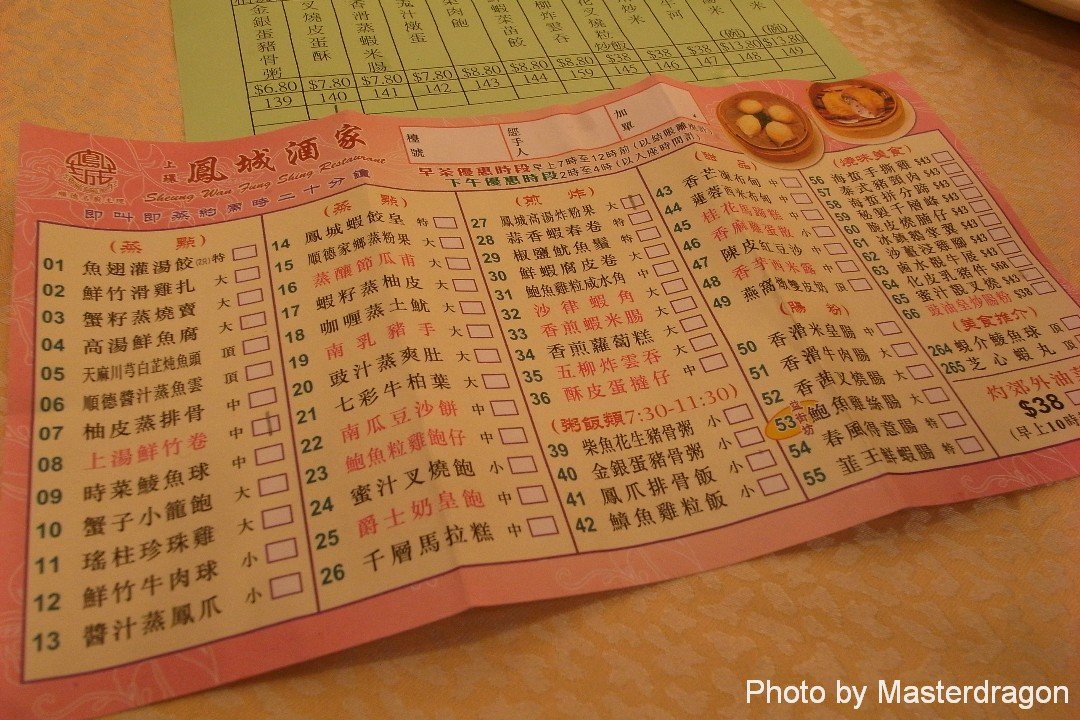 金銀蛋豬骨粥
叉燒皮蛋酥
香滑蒸蝦米腸
$6.80 $7.80 $7.80 $7.80 $8.80 $8.80 $8.80 $38 $38 $38 $13.80 $13.80
139 140 141 142 143 144 159 145 146 147 148 149
上環 鳳城酒家
Sheung Wan Fung Shing Restaurant
即叫即蒸約需時二十分鐘
檯號
經手人
加單
早茶優惠時段早上7時至12時前
下午優惠時段2時至4時(以入座時間計)
(蒸點)
01 魚翅灌湯餃 特
02 鮮竹滑雞扎 大
03 蟹籽蒸燒賣 大
04 高湯鮮魚腐 大
05 天麻川芎白芷炖魚頭 頂
06 順德醬汁蒸魚雲 頂
07 柚皮蒸排骨 中
08 上湯鮮竹卷 中
09 時菜鯪魚球 中
10 蟹子小籠飽 大
11 瑤柱珍珠雞 大
12 鮮竹牛肉球 小
13 醬汁蒸鳳爪 小
(蒸點)
14 鳳城蝦餃皇 特
15 順德家鄉蒸粉果 大
16 蒸釀節瓜甫 大
17 蝦籽蒸柚皮 大
18 咖喱蒸土魷 大
19 南乳豬手 大
20 豉汁蒸爽肚 大
21 七彩牛柏葉 大
22 南瓜豆沙餅 中
23 鮑魚粒雞飽仔 中
24 蜜汁叉燒飽 小
25 爵士奶皇飽 中
26 千層馬拉糕 中
(煎炸)
27 鳳城高湯炸粉果 大
28 蒜香蝦春卷 特
29 椒鹽魷魚鬚 特
30 鮮蝦腐皮卷 大
31 鮑魚雞粒咸水角 中
32 沙律蝦角 大
33 香煎蝦米腸 大
34 香煎蘿蔔糕 大
35 五柳炸雲吞 大
36 酥皮蛋撻仔 中
(粥飯類7:30-11:30)
39 柴魚花生豬骨粥 小
40 金銀蛋豬骨粥 小
41 鳳爪排骨飯 小
42 鱆魚雞粒飯 小
(甜品)
43 香芒凍布甸 中
44 蓮蓉西米布甸 中
45 桂花馬蹄糕 中
46 香麻雞蛋散 小
47 陳皮紅豆沙 中
48 香芋西米露 中
49 燕窩鷓鴣雙皮奶 頂
(腸粉)
50 香滑米皇腸 中
51 香滑牛肉腸 大
52 香茜叉燒腸 大
53 鮑魚雞絲腸 大
54 春風得意腸 特
55 韮王鮮蝦腸 特
56 海蜇手撕雞 $43
57 泰式豬頭肉 $43
58 海蜇拼分蹄 $43
59 秘製千層峰 $43
60 脆皮燒腩仔 $43
61 $43
62 $43
63 鹵水 $43
64 化皮乳豬件 $68
65 蜜汁靚叉燒 $43
66 豉油皇炒腸粉 $38
(美食推介)
264 蝦分鯪魚球 頂
265 芝心蝦丸 頂
灼郊外油
$38
(早上10時
Photo by Masterdragon